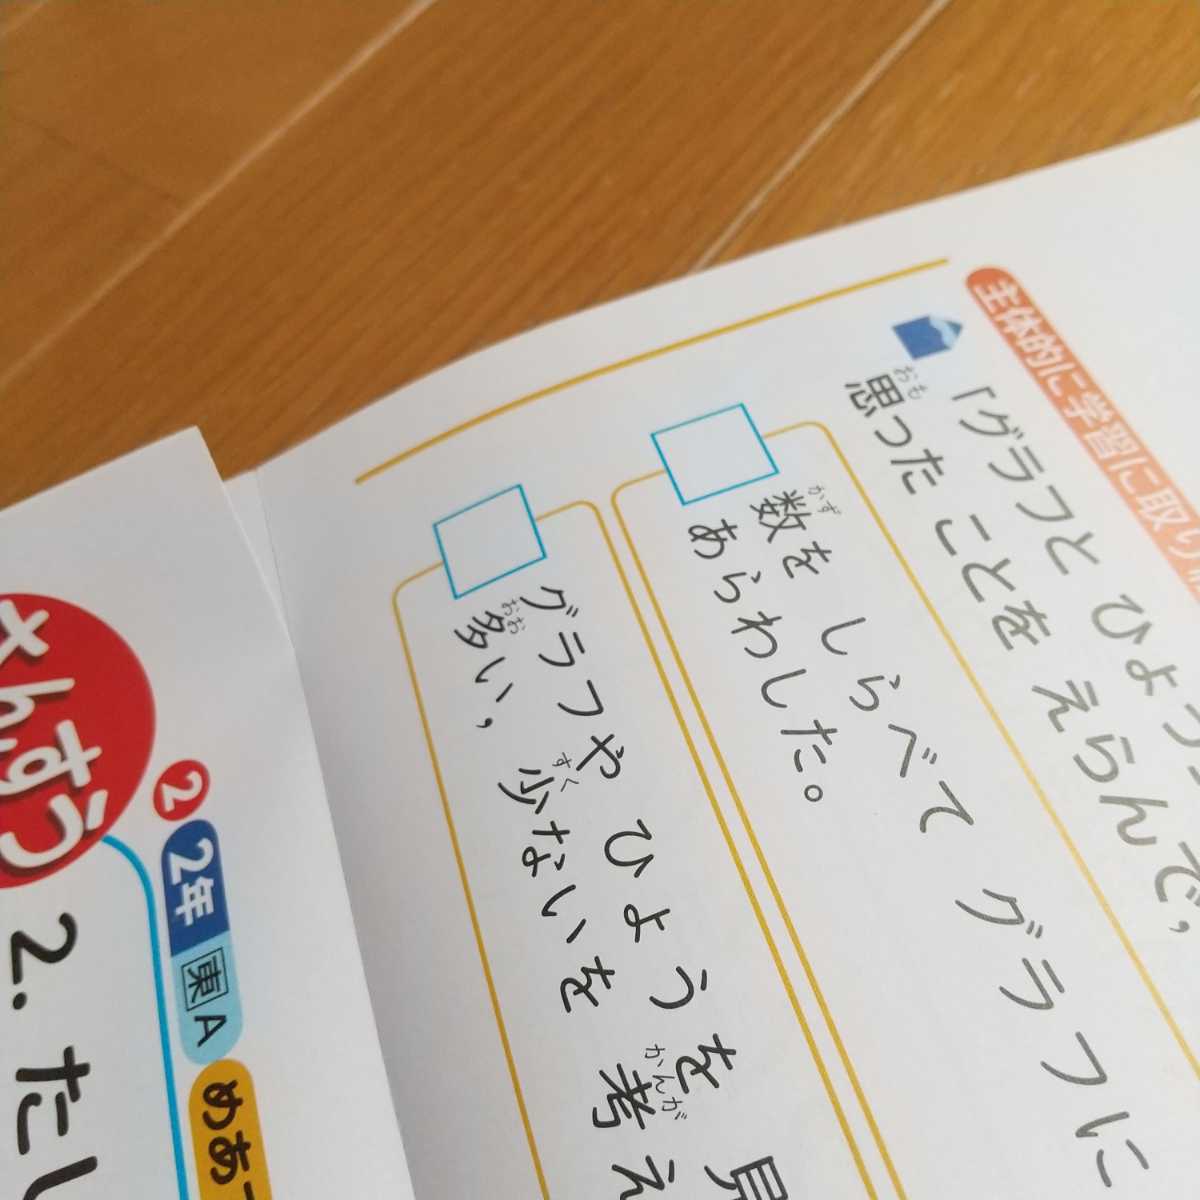 主体的に学習に取り
「グラフと ひょう
思った ことを えらんで,
おも
数を しらべて グラフに
かず
あらわした。
グラフや ひょうを 見
多い, 少ないを 考え
おお すく かんが
さんすう
2 2年 東 A めあ
2. たし